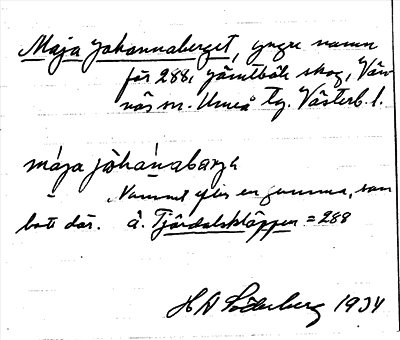 Maja Johannaberget, yngre namn
för 288, Jämtböle skog, Vän-
näs sn. Umeå tg. Västerb. l.
måja jòhánabarjə
Namnet efter en gumma, som
bott där. å. Tjärdalsklöppen = 288
H A Söderberg 1934